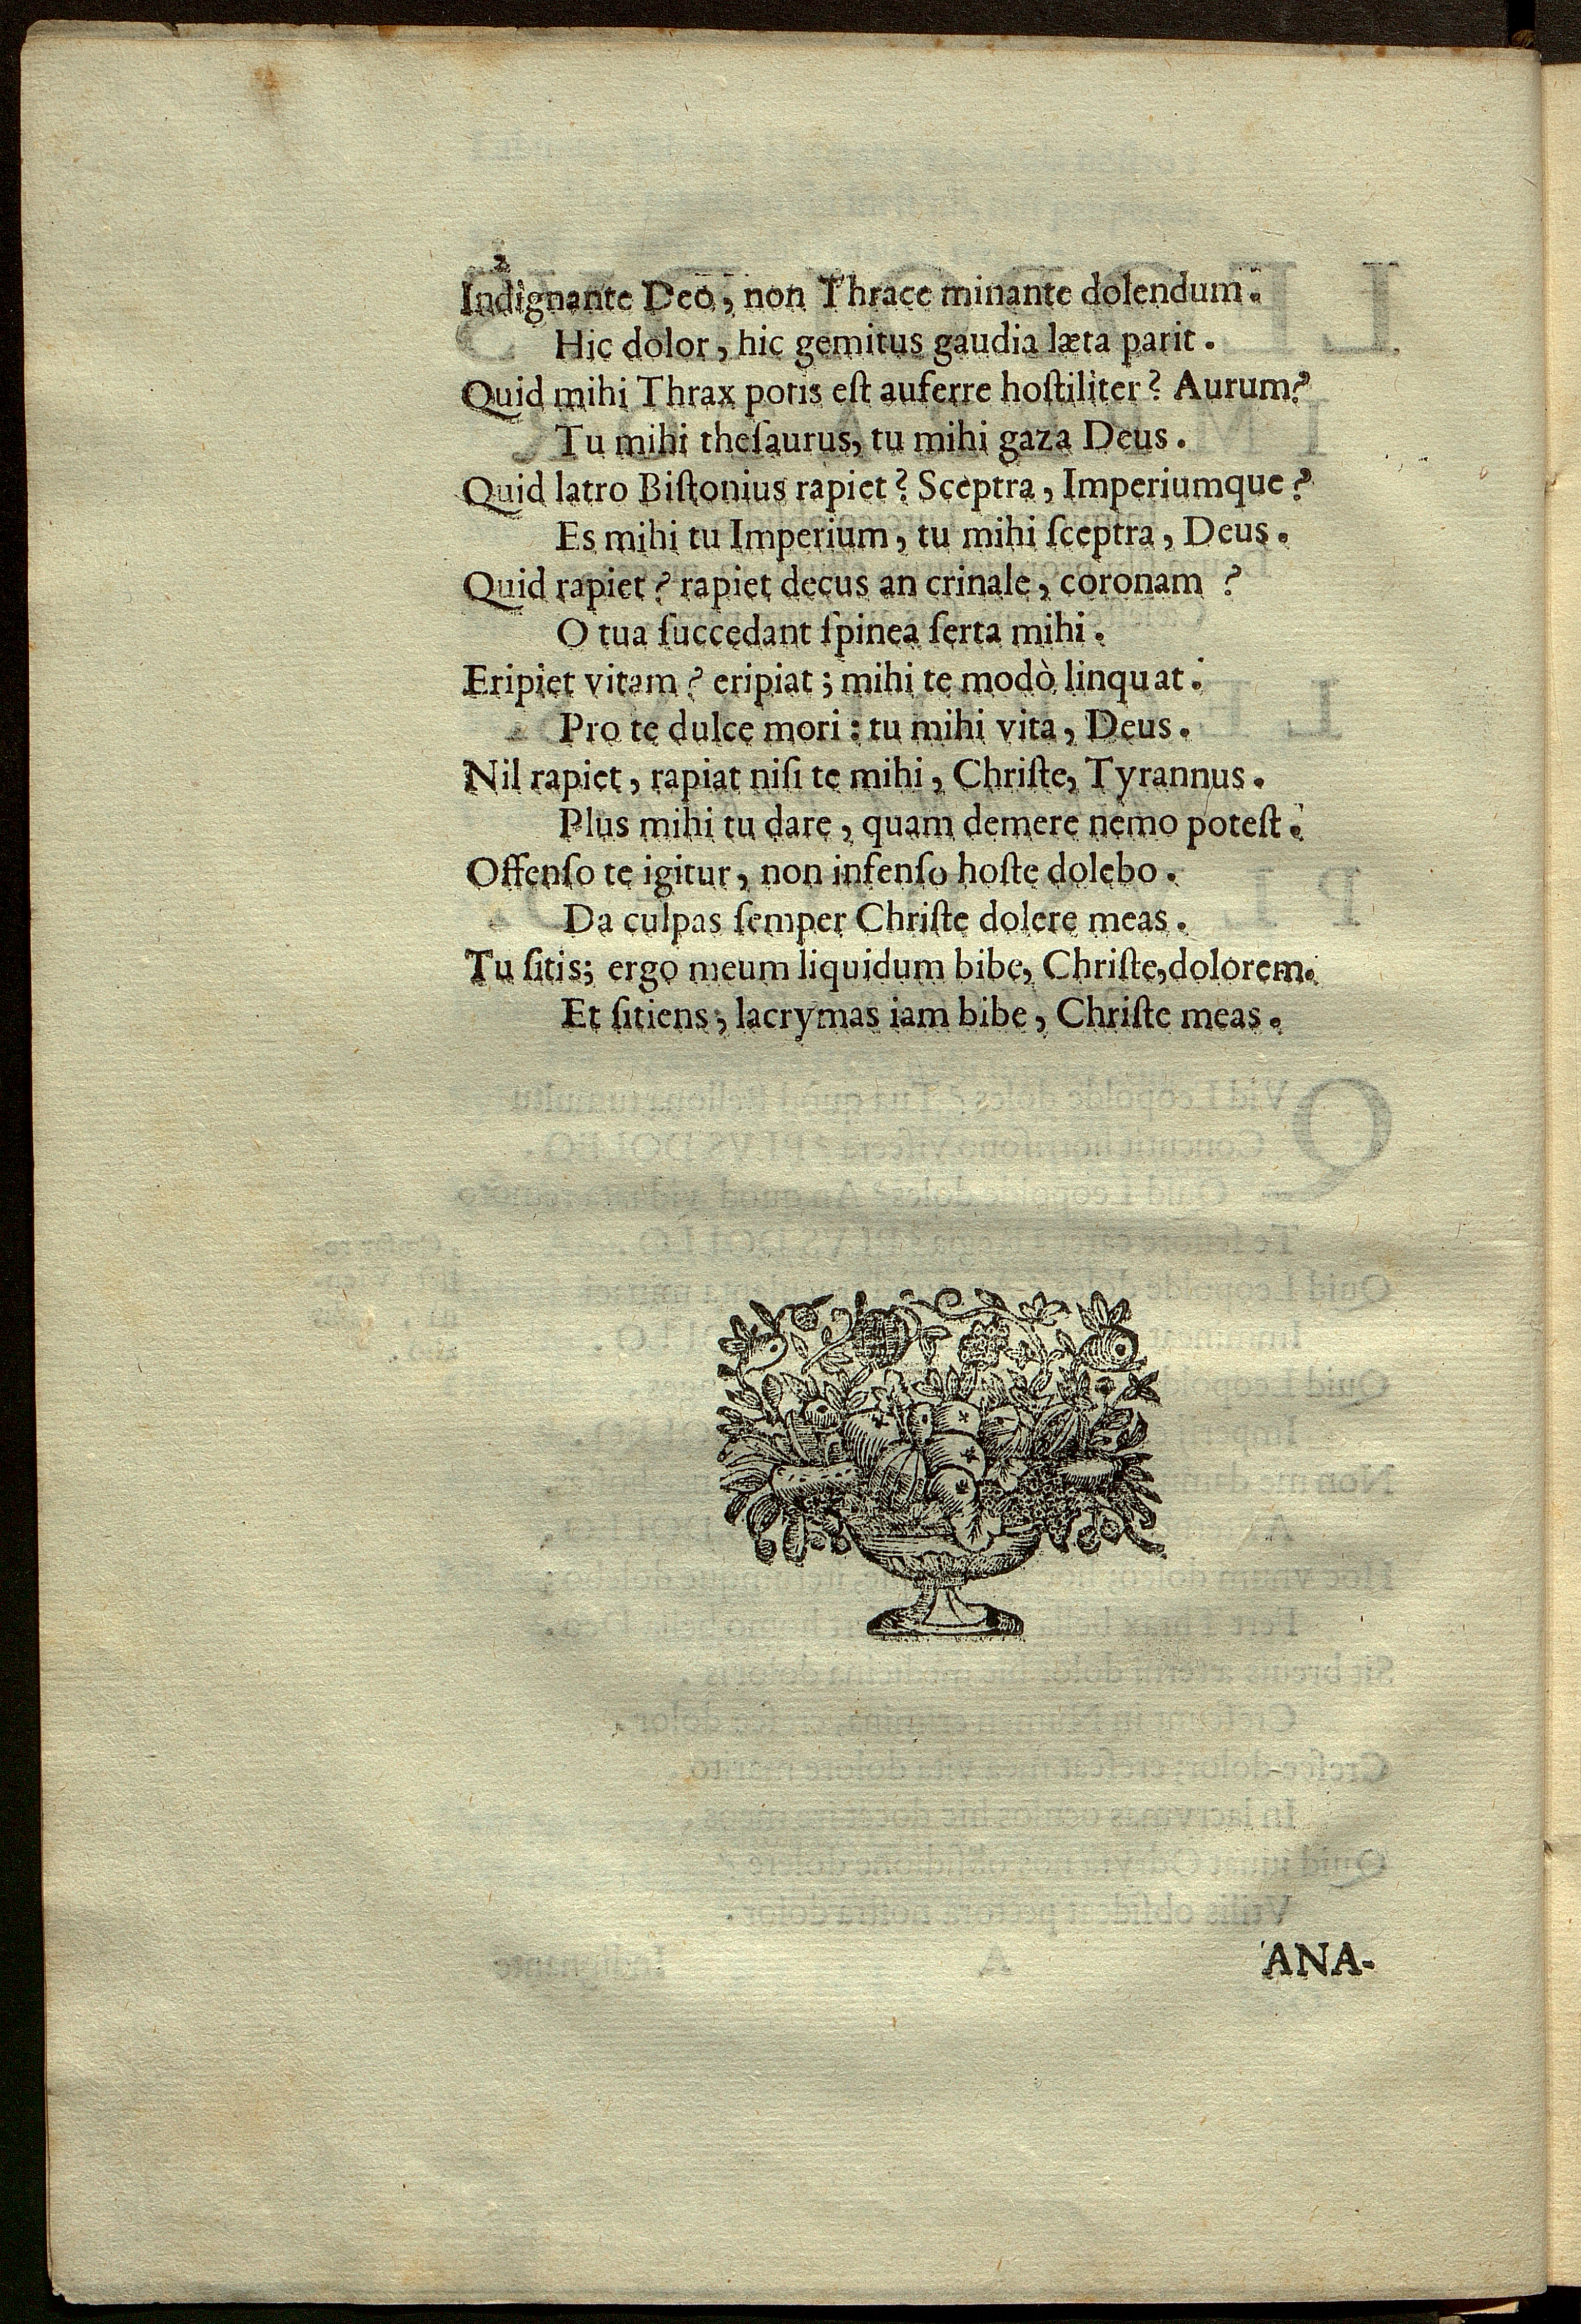 2
Indignante Deo, non Thrace minante dolendum.
Hic dolor, hic gemitus gaudia læta parit.
Quid mihi Thrax potis eſt auferre hoſtiliter? Aurum?
Tu mihi theſaurus, tu mihi gaza Deus.
Quid latro Biſtonius rapiet? Sceptra, Imperiumque?
Es mihi tu Imperium, tu mihi ſceptra, Deus.
Quid rapiet? rapiet decus an crinale, coronam?
O tua ſuccedant ſpinea ſerta mihi.
Eripiet vitam? eripiat; mihi te modò linquat.
Pro te dulce mori: tu mihi vita, Deus.
Nil rapiet, rapiat niſi te mihi, Chriſte, Tyrannus.
Plus mihi tu dare, quam demere nemo poteſt.
Offenſo te igitur, non infenſo hoſte dolebo.
Da culpas ſemper Chriſte dolere meas.
Tu ſitis; ergo meum liquidum bibe, Chriſte, dolorem.
Et ſitiens; lacrymas iam bibe, Chriſte meas.
ANA-